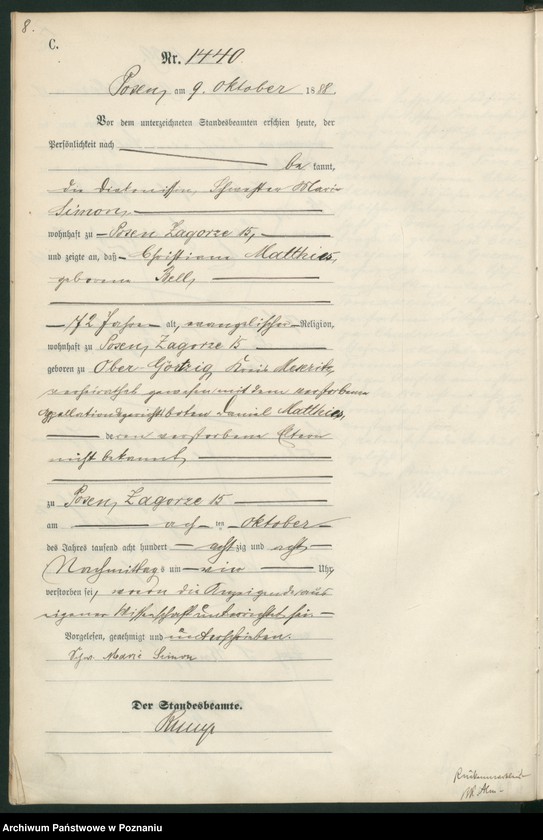 8.
C.
Nr. 1440.
Posen, am 9. Oktober 1888.
Vor dem unterzeichneten Standesbeamten erschien heute, der
Persönlichkeit nach
bekannt,
die Diakonissin, Schwester Marie
Simon,
wohnhaft zu Posen Zagorze 15,
und zeigte an, daß Christiane Matthies,
geborene Bell,
72 Jahre alt, evangelischer Religion,
wohnhaft zu Posen, Zagorze 15
geboren zu Ober Görtzig, Kreis Meseritz,
verheirathet gewesen mit dem verstorbenen
Appellationsgerichtsboten Daniel Matthies,
deren verstorbene Eltern
nicht bekannt,
zu Posen, Zagorze 15
am acht ten Oktober
des Jahres tausend acht hundert achtzig und acht
Nachmittags um vier Uhr,
verstorben sei, wovon die Anzeigende aus
eigener Wissenschaft unterrichtet sei.
Vorgelesen, genehmigt und unterschrieben.
Schw. Marie Simon
Der Standesbeamte.
Archiwum Państwowe w Poznaniu